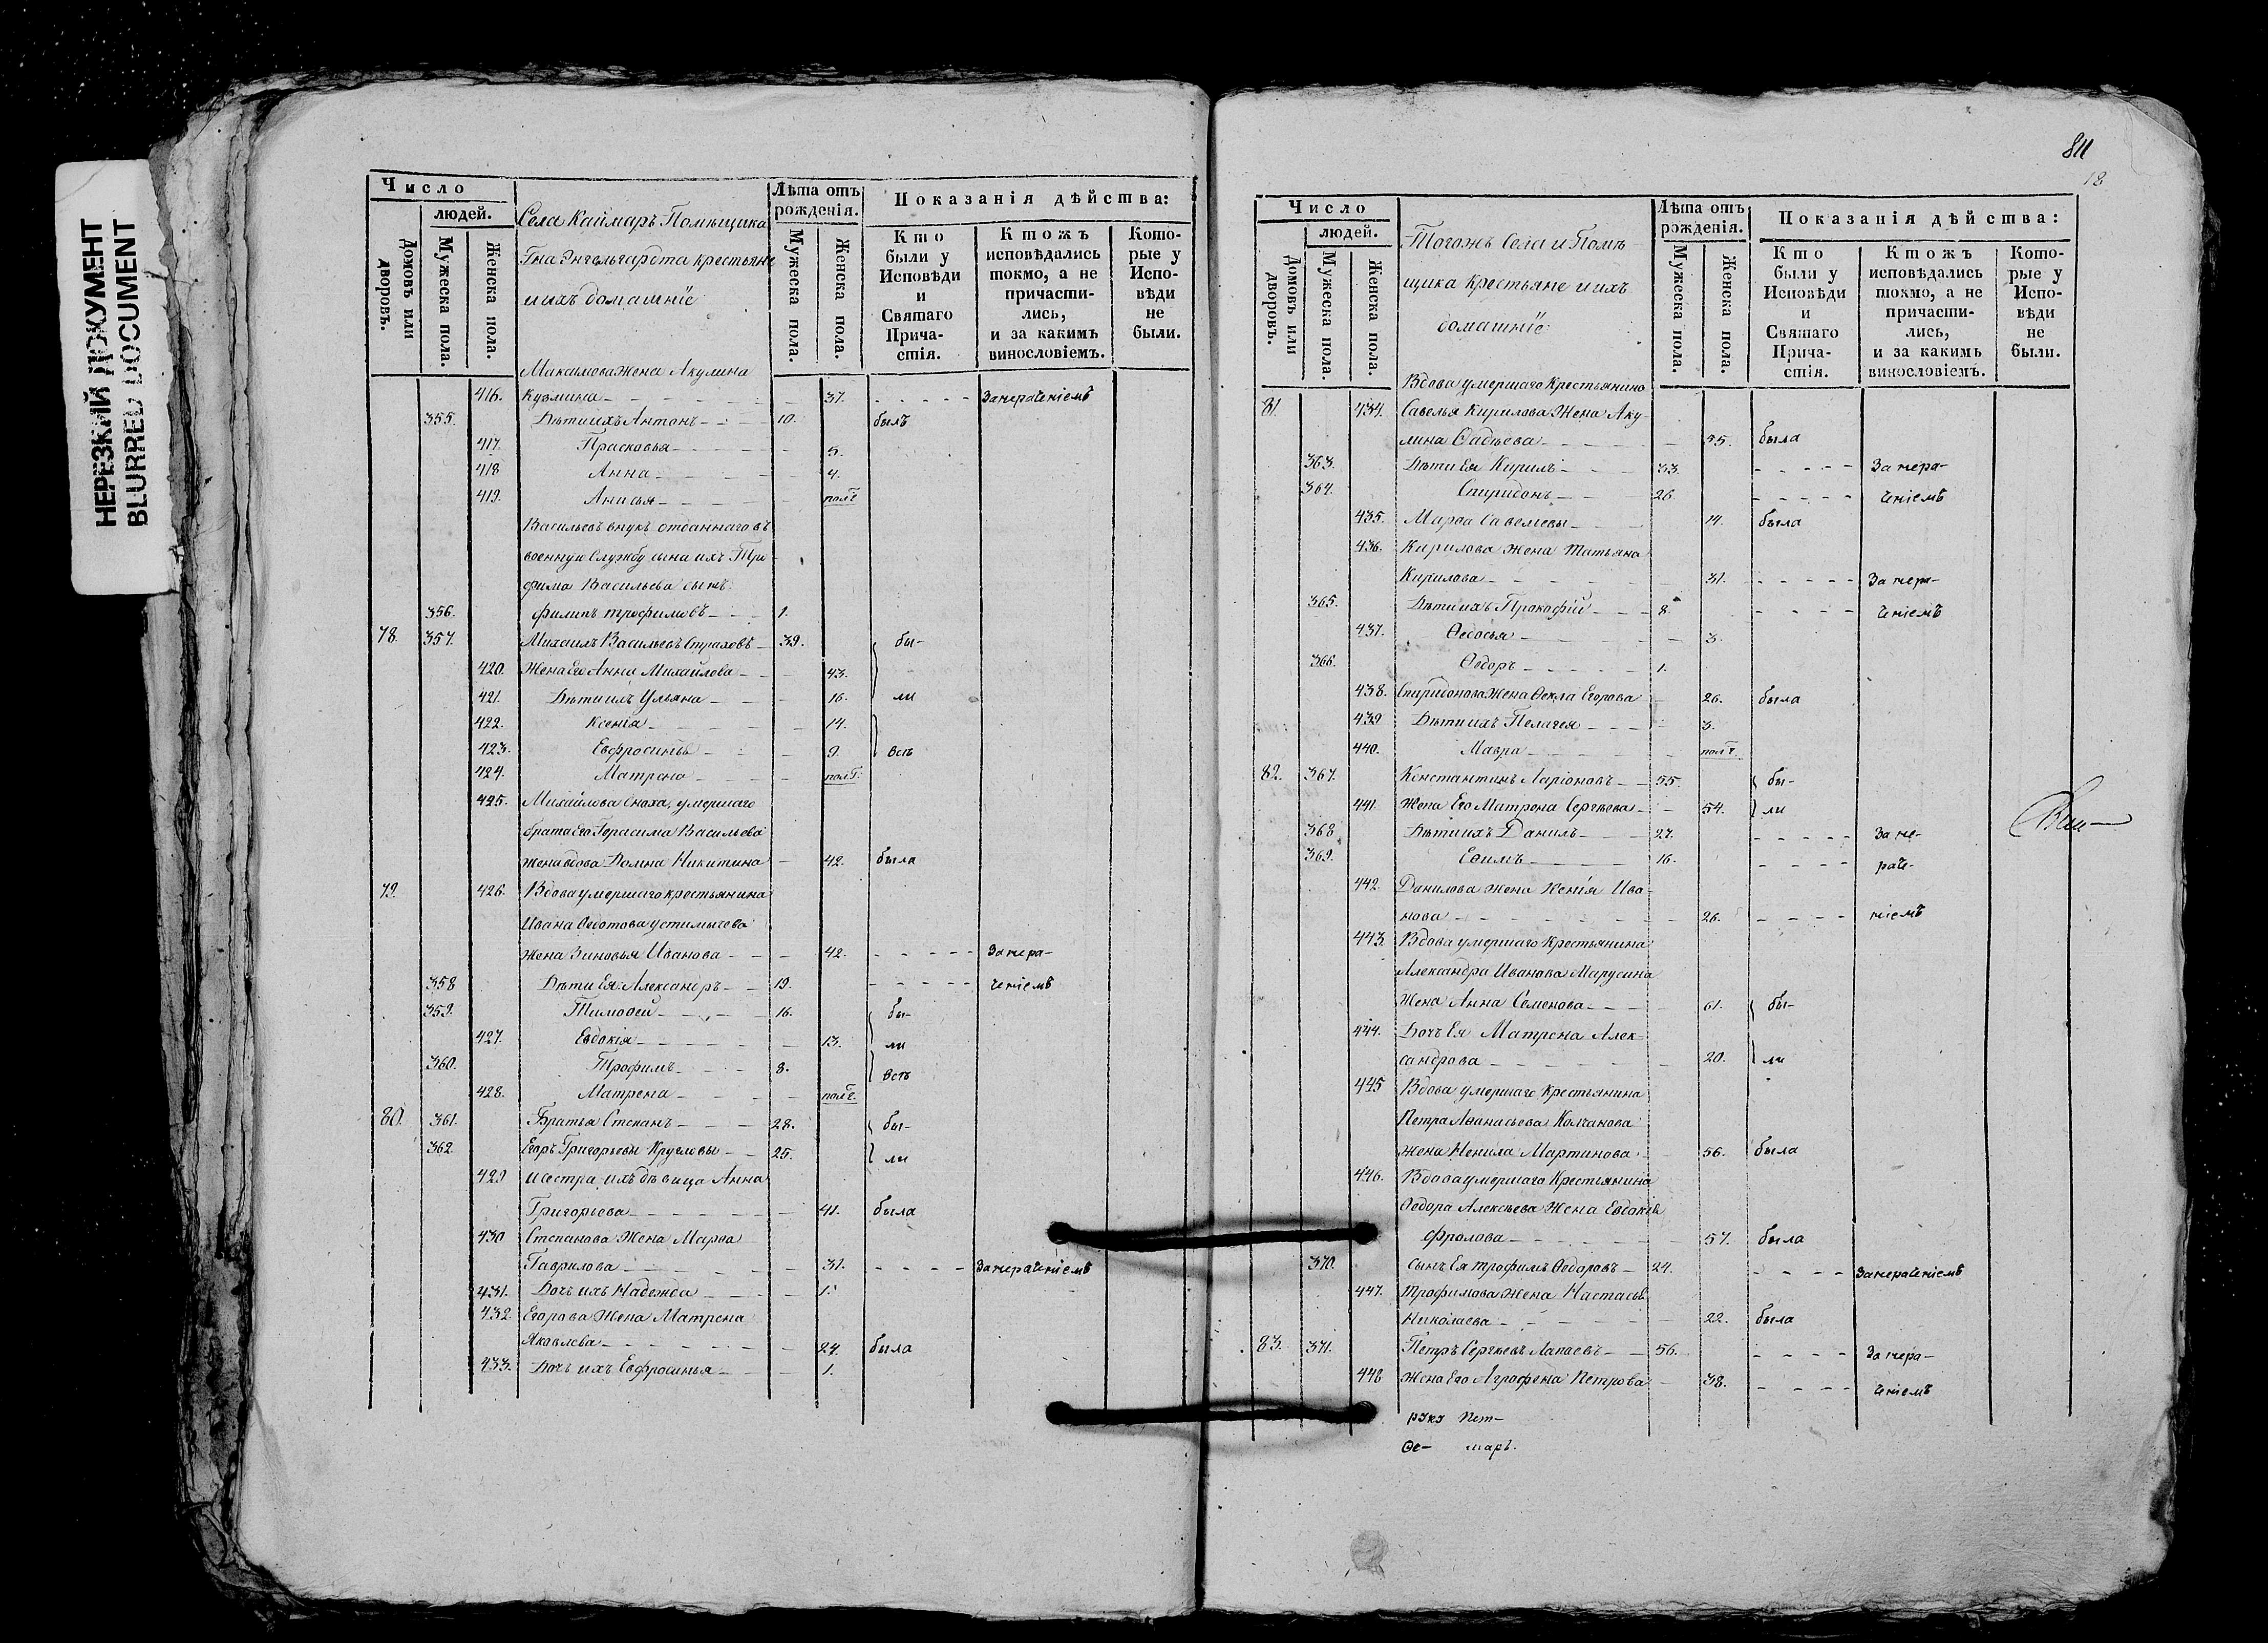 НЕРЕЗКИЙ ДОКУМЕНТ
BLURRED DOCUMENT
Число
людей.
Домовъ или дворовъ.
Мужеска пола.
Женска пола.
Села Каймаръ Помѣщика
Гна Энгельгардта крестьяне
и ихъ домашніе
Лѣта отъ рожденія.
Мужеска пола.
Женска пола.
Показанія дѣйства:
Кто были у Исповѣди и Святаго Причастія.
Ктожъ исповѣдались токмо, а не причастились, и за какимъ винословіемъ.
Которые у Исповѣди не были.
Максимова жена Акулина
416. Кузмина 37. За нераченіемъ
355. Дѣти ихъ Антонъ 10. былъ
417. Прасковья 5.
418 Анна 4.
419. Анисья пол г
Васильевъ внукъ отданнаго въ
военную службу сына ихъ Тро
фима Васильева сынъ.
356. Филипъ Трофимовъ 1.
78. 357. Михаилъ Васильевъ Страховъ 39. бы-
420. Жена Его Анна Михайлова 43.
421. Дѣти ихъ Ульяна 16. ли
422. Ксенія 14.
423. Евфросинья 9. всѣ
424. Матрена пол г.
425. Михайлова сноха, умершаго
брата Его Герасима Васильева
жена вдова Домна Никитина 42. была
79. 426. Вдова умершаго крестьянина
Ивана Ѳедотова
жена Зиновья Иванова 42. За нера-
358 Дѣти Ея: Александръ 19. ченіемъ
359. Тимоѳей 16. бы-
427. Евдокія 13. ли
360. Трофимъ 8. всѣ
428. Матрена пол г.
80. 361. Братья Степанъ 28. бы-
362. Егоръ Григорьевы Кругловы 25. ли
429 и сестра ихъ дѣвица Анна
Григорьева 41. была
430 Степанова Жена Марѳа
Гаврилова 31. За нераченіемъ
431. Дочь ихъ Надежда 1.
432. Егорова Жена Матрена
Яковлева 24. была
433. Дочь ихъ Евфросинья 1.
811
18
Число
людей.
Домовъ или дворовъ.
Мужеска пола.
Женска пола.
Тогожъ Села и Помѣ
щика крестьяне и ихъ
домашніе:
Лѣта отъ рожденія.
Мужеска пола.
Женска пола.
Показанія дѣйства:
Кто были у Исповѣди и Святаго Причастія.
Ктожъ исповѣдались токмо, а не причастились, и за какимъ винословіемъ.
Которые у Исповѣди не были.
Вдова умершаго Крестьянина
81. 434. Савелья Кирилова Жена Аку-
лина Ѳадѣева 55. была
363. Дѣти Ея Кирилъ 33. За нера-
364. Спиридонъ 26 ченіемъ
435. Марѳа Савельевы 14. была
436. Кирилова Жена Татьяна
Кирилова 31. За нера-
365. Дѣти ихъ Прокофій 8. ченіемъ
437. Ѳедосья 3.
366. Ѳедоръ 1.
438. Спиридонова Жена Ѳекла Егорова 26. была
439 Дѣти ихъ Пелагея 3.
440. Мавра пол г.
82. 367. Константинъ Ларіоновъ 55. бы-
441. Жена Его Матрена Сергѣева 54. ли
368 Дѣти ихъ Данилъ 27. За не-
369. Еѳимъ 16. раче-
442. Данилова жена Ксенія Ива-
нова 26. ніемъ
443. Вдова умершаго Крестьянина
Александра Иванова Марусина
Жена Анна Семенова 61. бы-
444. Дочь Ея Матрена Алек-
сандрова 20. ли
445 Вдова умершаго Крестьянина
Петра Аѳанасьева Колчанова
жена Ненила Мартинова 56. была
446. Вдова умершаго Крестьянина
Ѳедора Алексѣева Жена Евдокія
Фролова 57. была
370. Сынъ Ея Трофимъ Ѳедоровъ 24. За нераченіемъ
447. Трофимова Жена Настасья
Николаева 22. была
83. 371. Петръ Сергѣевъ Лапаевъ 56. За нера-
448 Жена Его Аграфена Петрова 38. ченіемъ
руку Пет-
Ѳе- маръ.